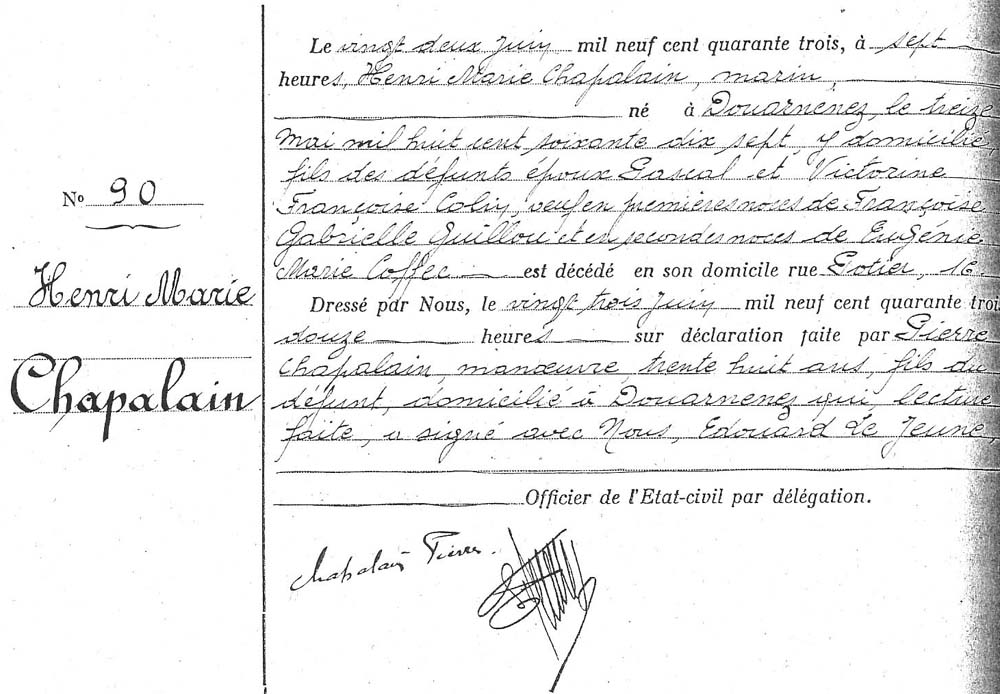 Nº 90
Henri Marie
Chapalain
Le vingt deux Juin mil neuf cent quarante trois, à sept
heures, Henri Marie Chapalain, marin,
né à Douarnenez, le treize
Mai mil huit cent soixante dix sept, y domicilié,
fils des défunts époux Pascal et Victorine
Françoise Colin, veuf en premières noces de Françoise
Gabrielle Guillou et en secondes noces de Eugénie
Marie Coffec est décédé en son domicile rue 16.
Dressé par Nous, le vingt trois Juin mil neuf cent quarante troi
douze heures sur déclaration faite par Pierre
Chapalain, manœuvre, trente huit ans, fils du
défunt, domicilié à Douarnenez qui, lecture
faite, a signé avec Nous, Edouard Le Jeune,
Officier de l'Etat-civil par délégation.
Chapalain Pierre.